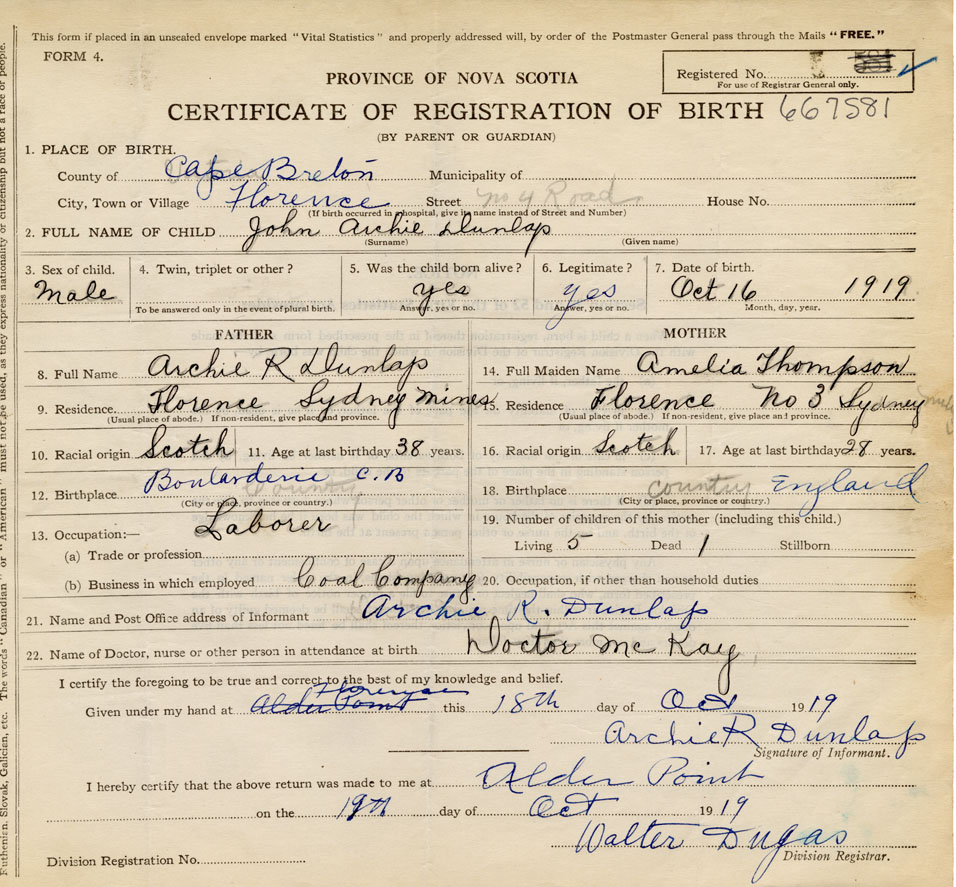 This form if placed in an unsealed envelope marked "Vital Statistics" and properly addressed will, by order of the Postmaster General pass through the Mails "FREE."
FORM 4.
PROVINCE OF NOVA SCOTIA
Registered No.
For use of Registrar General only.
CERTIFICATE OF REGISTRATION OF BIRTH 667581
(BY PARENT OR GUARDIAN)
1. PLACE OF BIRTH.
County of Cape Breton Municipality of
City, Town or Village Florence Street No 4 Road House No.
(If birth occurred in a hospital, give its name instead of Street and Number)
2. FULL NAME OF CHILD John Archie Dunlap
(Surname) (Given name)
3. Sex of child. 4. Twin, triplet or other? 5. Was the child born alive? 6. Legitimate? 7. Date of birth.
Male yes yes Oct 16 1919
To be answered only in the event of plural birth. Answer, yes or no. Answer, yes or no. Month, day, year.
FATHER MOTHER
8. Full Name Archie R Dunlap 14. Full Maiden Name Amelia Thompson
9. Residence. Florence Sydney Mines 15. Residence Florence No 3 Sydney
(Usual place of abode.) If non-resident, give place and province. (Usual place of abode.) If non-resident, give place and province.
10. Racial origin Scotch 11. Age at last birthday 38 years. 16. Racial origin Scotch 17. Age at last birthday 28 years.
12. Birthplace Boularderie C.B County 18. Birthplace country England
(City or place, province or country.) (City or place, province or country.)
13. Occupation:— Laborer 19. Number of children of this mother (including this child.)
(a) Trade or profession Living 5 Dead 1 Stillborn
(b) Business in which employed Coal Company 20. Occupation, if other than household duties
21. Name and Post Office address of Informant Archie R. Dunlap
22. Name of Doctor, nurse or other person in attendance at birth Doctor Mc Kay
I certify the foregoing to be true and correct to the best of my knowledge and belief.
Given under my hand at Alder Point this 18th day of Oct 1919
Archie R Dunlap
Signature of Informant.
I hereby certify that the above return was made to me at Alder Point
on the 19th day of Oct 1919
Walter Dugas
Division Registration No. Division Registrar.
Ruthenian, Slovak, Galician, etc. The words "Canadian" or "American" must not be used, as they express nationality or citizenship but not a race or people.